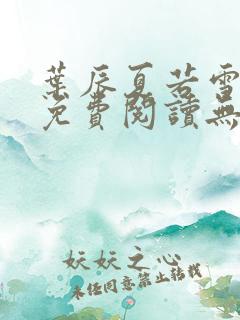 葉辰夏若雪
免費閱讀無
妖妖之心
未經同意禁止轉載